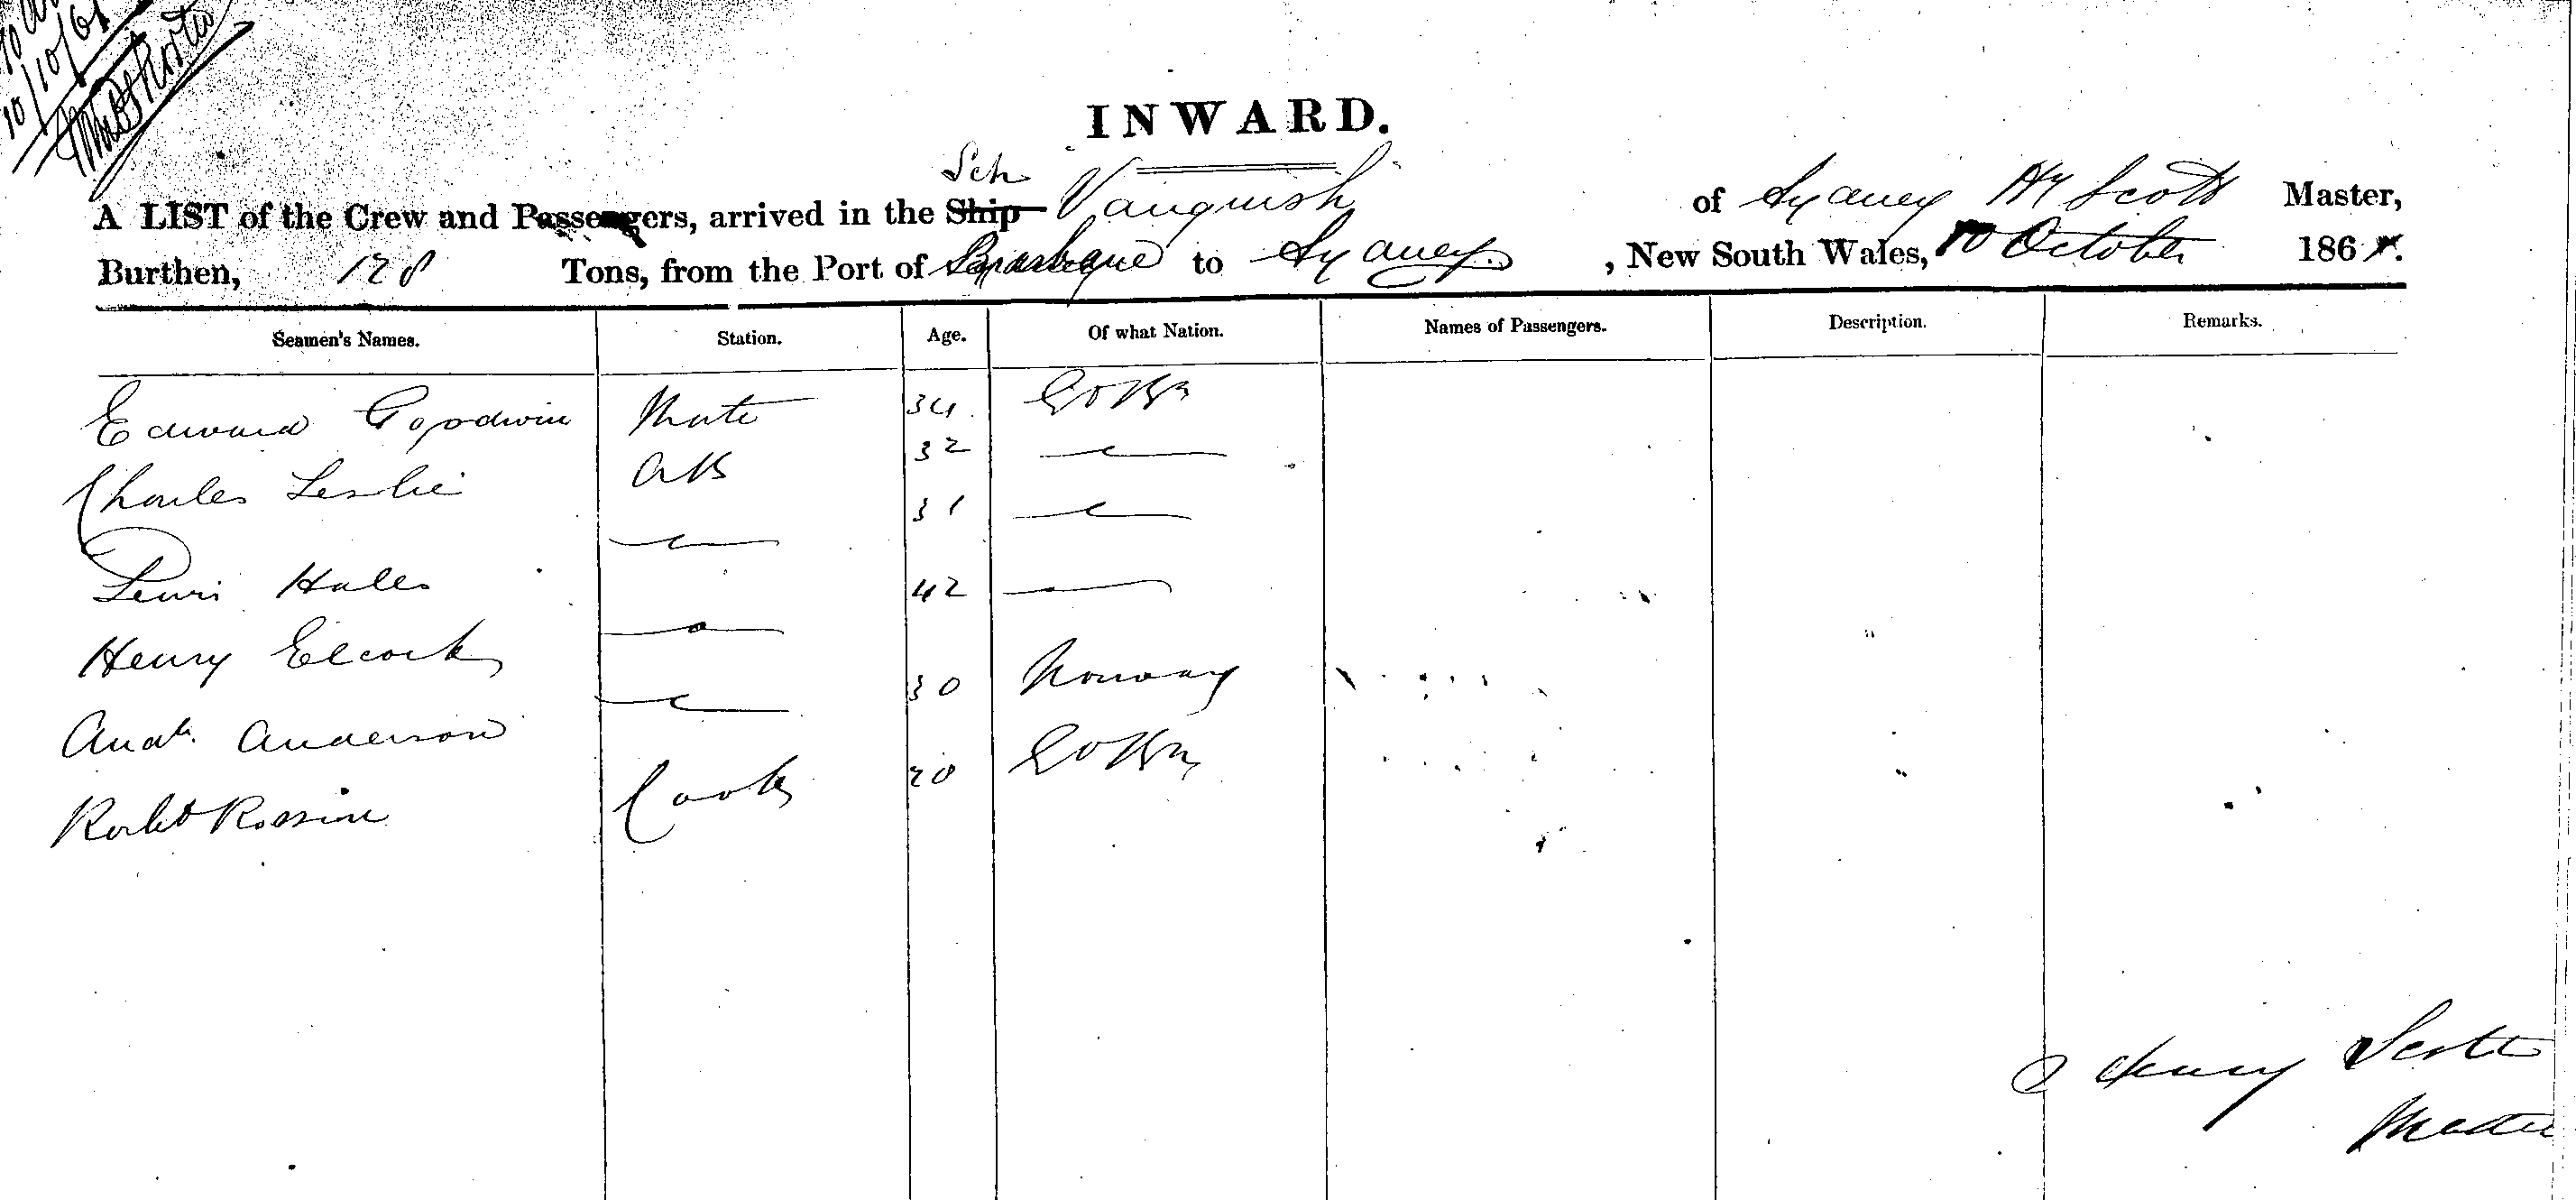 10/10/61
INWARD.
Sch
A LIST of the Crew and Passengers, arrived in the Ship Vanquish of Sydney Hy Scott Master,
Burthen, 128 Tons, from the Port of to Sydney , New South Wales, 10 October 1861.
Seamen's Names. Station. Age. Of what Nation. Names of Passengers. Description. Remarks.
Edward Goodwin Mate 34 Gt Bn
Charles Leslie AB 32 —〃—
Lewis Hales —〃— 31 —〃—
Henry Elcock —〃— 42 —
Andw. Anderson —〃— 30 Norway
Robt Rossin Cook 20 Gt Bn
Henry Scott
Master